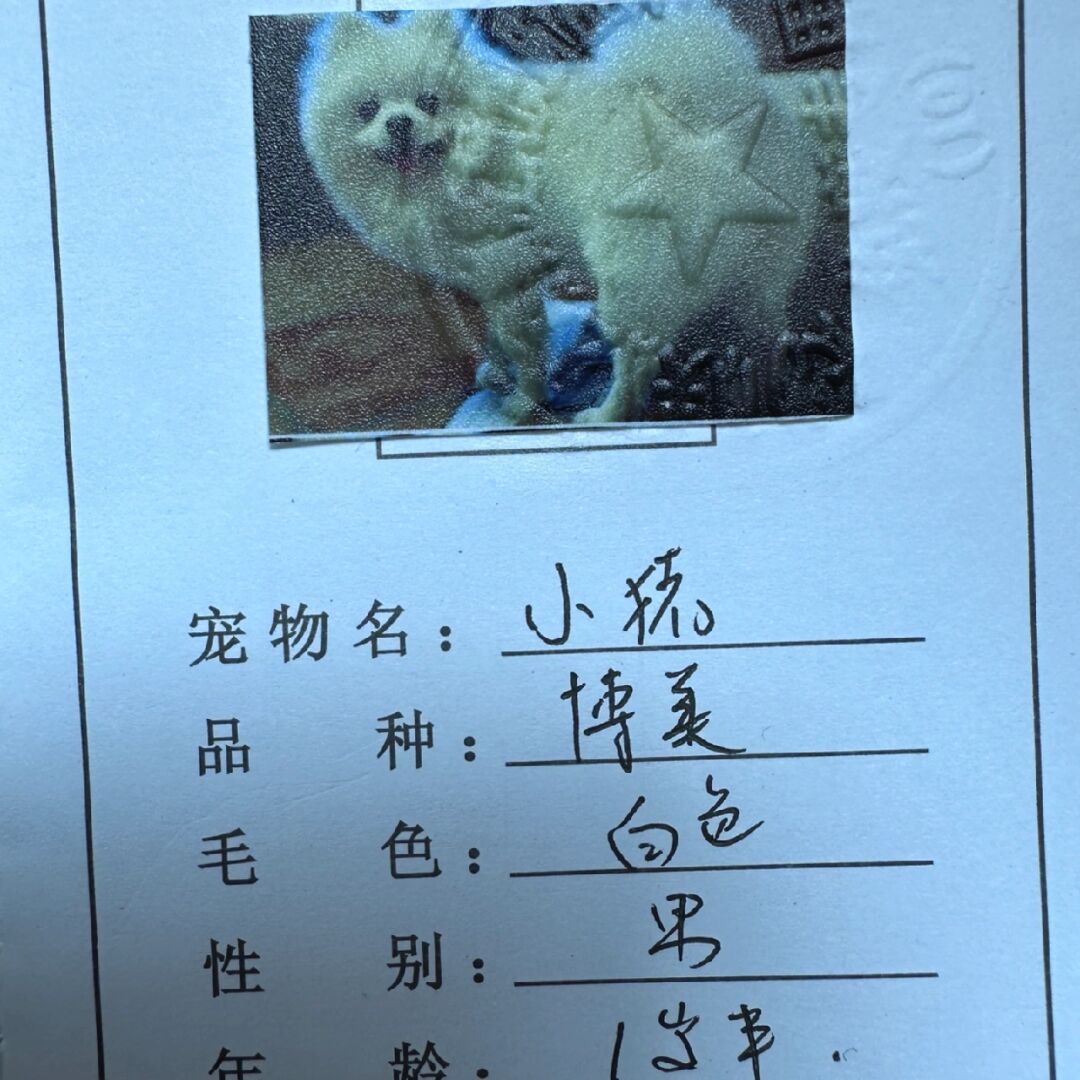 宠物名：小猪
品种：博美
毛色：白色
性别：男
年龄：1岁半.